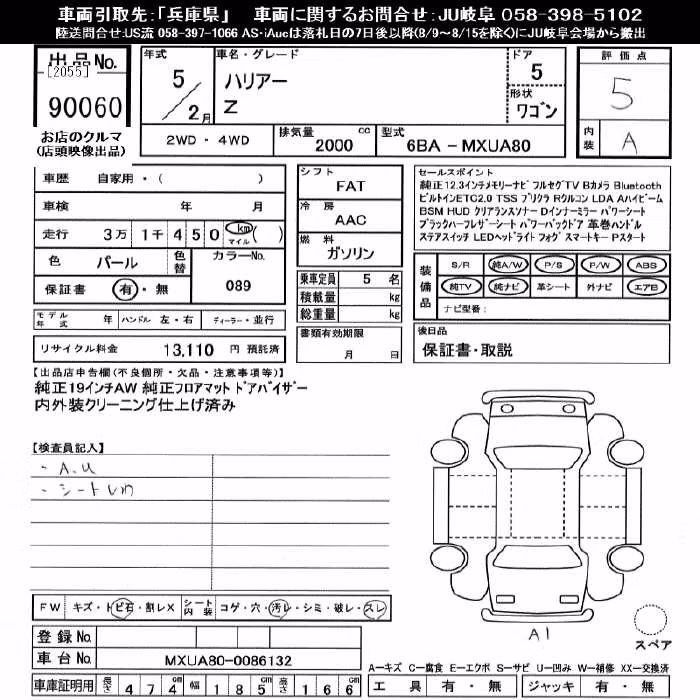 車両引取先:「兵庫県」　車両に関するお問合せ:JU岐阜 058-398-5102
陸送問合せ:US流 058-397-1066 AS・iAucは落札日の7日後以降(8/9～8/15を除く)にJU岐阜会場から搬出
出品No.
[2055]
90060
お店のクルマ
(店頭映像出品)
年式
5／2月
車名・グレード
ハリアー
Z
ドア
5
形状
ワゴン
2WD ・ 4WD
排気量 2000 cc
型式 6BA - MXUA80
評価点
5
内装 A
車歴 自家用・( )
車検 年 月
走行 3万 1千 4 5 0 km マイル ( )
色 パール 色替 カラーNo. 089
保証書 有・無
モデル年式 年 ハンドル 左・右 ディーラー・並行
リサイクル料金 13,110 円 預託済
シフト
FAT
冷房
AAC
燃料
ガソリン
乗車定員 5 名
積載量 kg
総重量 kg
書類有効期限
月 日
セールスポイント
純正12.3インチメモリーナビ フルセグTV Bカメラ Bluetooth
ビルトインETC2.0 TSS プリクラ Rクルコン LDA Aハイビーム
BSM HUD クリアランスソナー Dインナーミラー パワーシート
ブラックハーフレザーシート パワーバックドア 革巻ハンドル
ステアスイッチ LEDヘッドライト フォグ スマートキー Pスタート
装備品
S/R 純A/W P/S P/W ABS
純TV 純ナビ 革シート 外ナビ エアB
ナビ型番:
後日品
保証書・取説
【出品店申告欄(不良個所・欠品・注意事項等)】
純正19インチAW 純正フロアマット ドアバイザー
内外装クリーニング仕上げ済み
【検査員記入】
- A.U
- シートいの
FW キズ・トビ石・割レX シート内装 コゲ・穴・汚レ・シミ・破レ・スレ
登録No.
車台No. MXUA80-0086132
車庫証明用 長さ 4 7 4 cm 幅 1 8 5 cm 高さ 1 6 6 cm
A1
スペア
A－キズ C－腐食 E－エクボ S－サビ U－凹み W－補修 XX－交換済
工具 有・無 ジャッキ 有・無